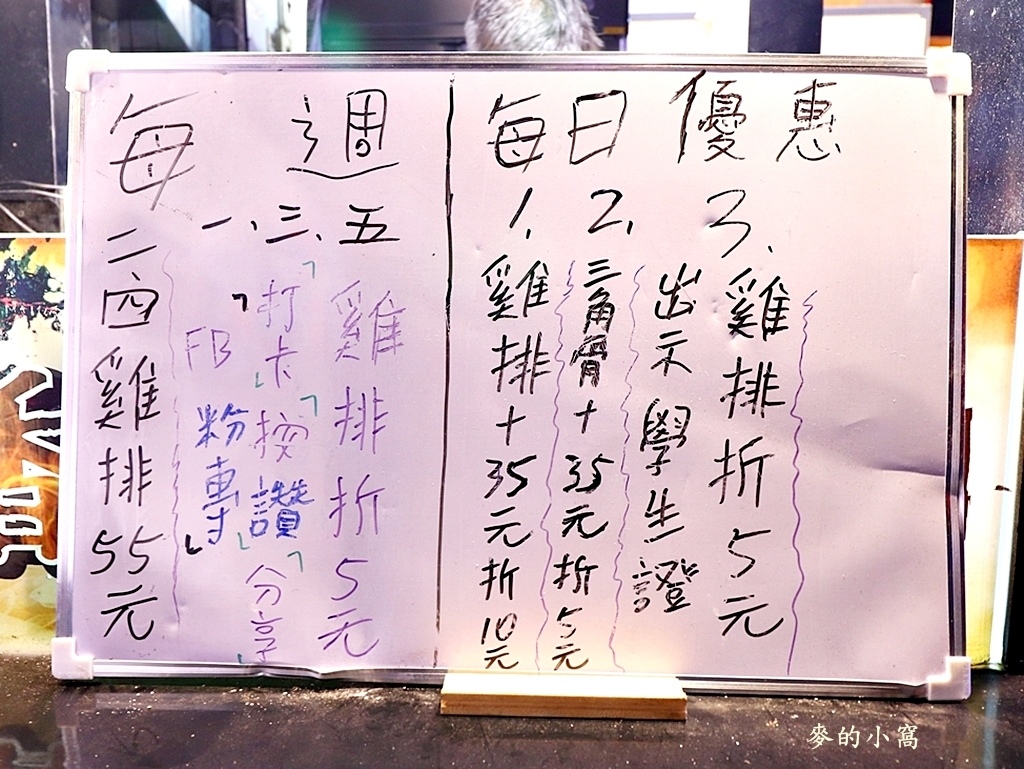 每週
二四雞排55元
一、三、五
「FB粉專」
「打卡」「按讚」「分享」
雞排折5元
每日優惠
1.
雞排+35元折10元
2.
三角骨+35元折5元
3.
出示學生證
雞排折5元
麥的小窩